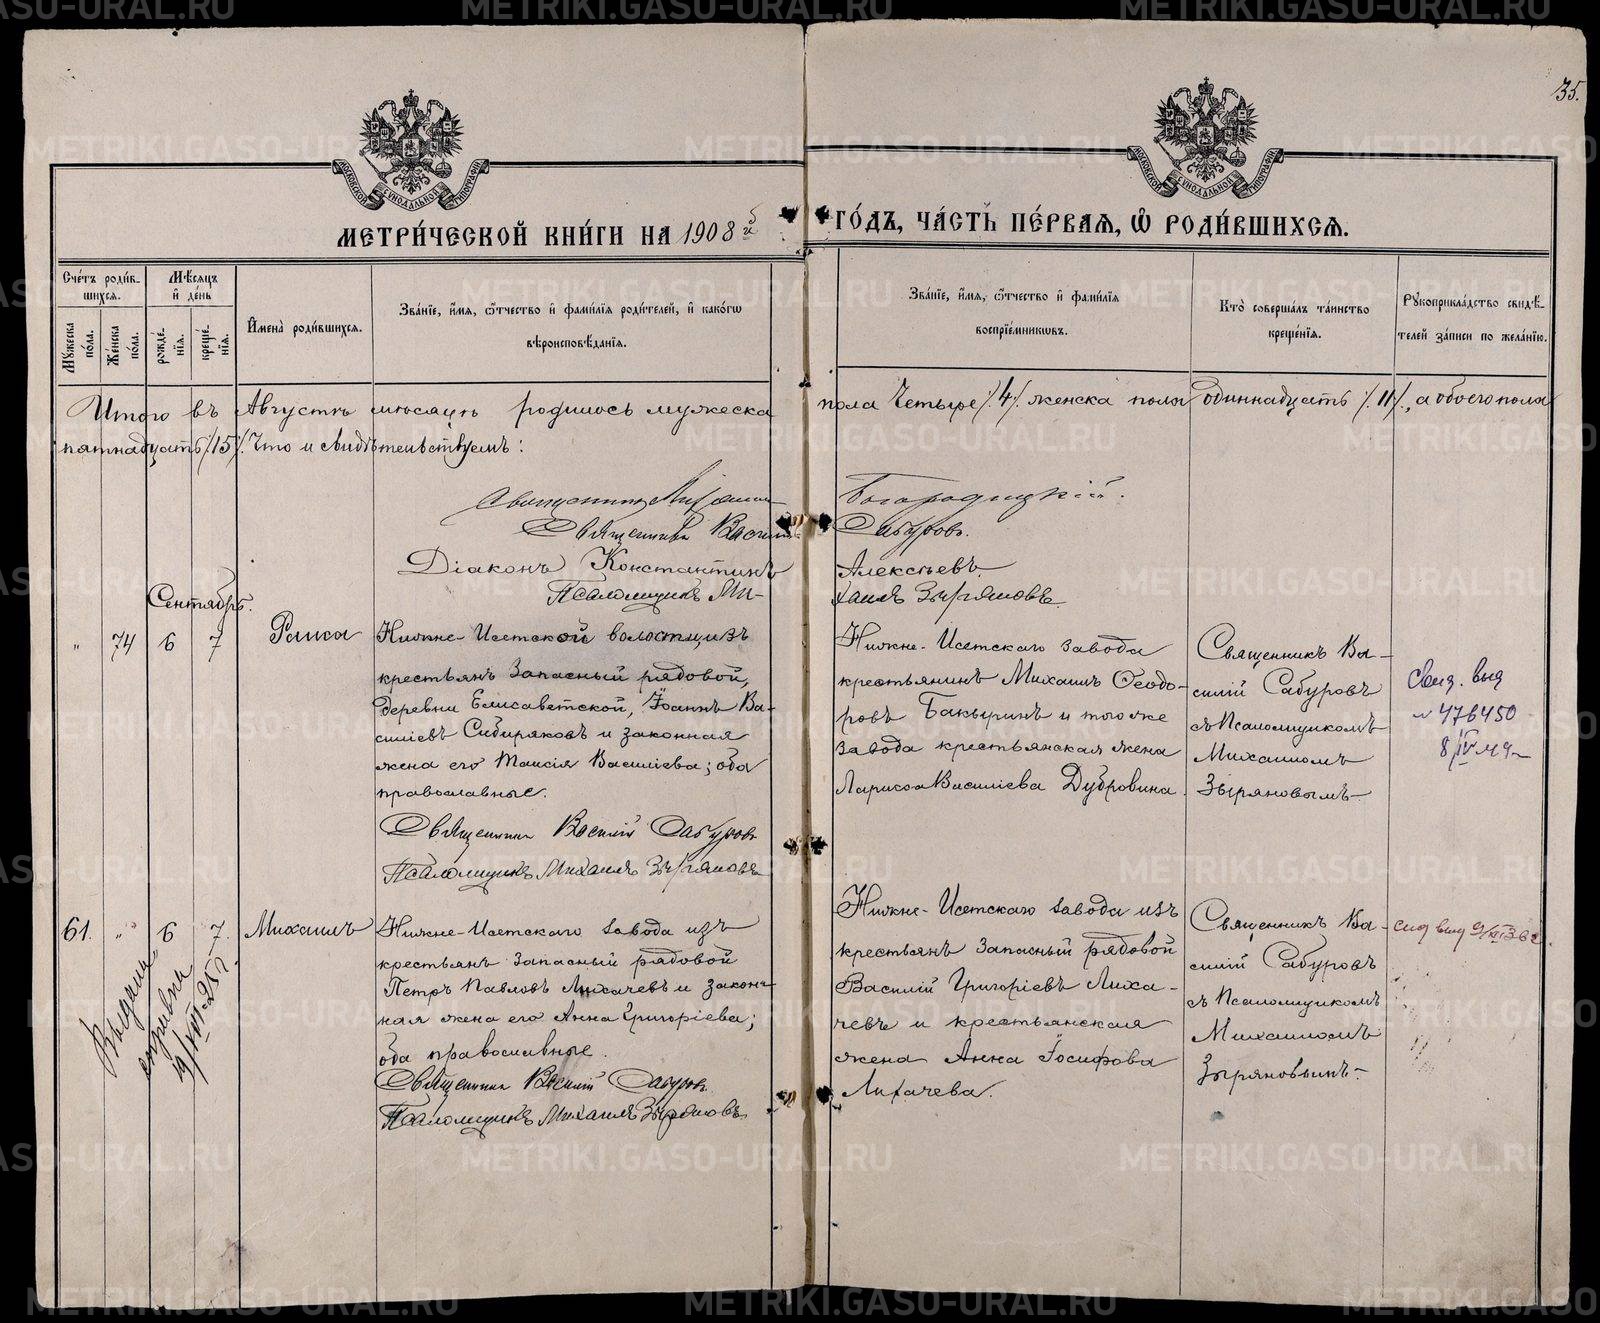 35.
МОСКОВСКОЙ СѴНОДАЛЬНОЙ ТИПОГРАФІИ
МОСКОВСКОЙ СѴНОДАЛЬНОЙ ТИПОГРАФІИ
МЕТРИ́ЧЕСКОЙ КНИ́ГИ НА 1908 й ГО́ДЪ, ЧА́СТЬ ПЕ́РВАЯ, Ѽ РОДИ́ВШИХСЯ.
Сче́тъ роди́в-
шихся.
Мꙋ́жеска по́ла.
Же́нска по́ла.
Мѣ́сяцъ
и҆ де́нь
рожде́-
нїя.
креще́-
нїя.
И҆мена̀ роди́вшихся.
Зва́нїе, и҆́мя, ѻ҆́тчество и҆ фами́лїя роди́телей, и҆ како́гѡ
вѣроисповѣ́данїя.
Зва́нїе, и҆́мя, ѻ҆́тчество и҆ фами́лїя
воспрїе́мникѡвъ.
Кто̀ соверша́лъ та́инство
креще́нїя.
Рꙋкоприкла́дство свидѣ́-
телей за́писи по жела́нїю.
Итого въ Августѣ мѣсяцѣ родилось мужеска пола Четыре /4/. женска пола одиннадцать /11/, а обоего пола
пятнадцать /15/. Что и свидѣтельствуемъ:
Священникъ Михаилъ Богородицкій.
Священникъ Василій Сабуровъ.
Діаконъ Константинъ Алексѣевъ.
Псаломщикъ Михаилъ Зыряновъ
Сентябрь.
" 74 6 7 Раиса
Нижне-Исетской волости, изъ
крестьянъ запасный рядовой,
деревни Елисаветской, Іоаннъ Ва-
силіевъ Сибиряковъ и законная
жена его Таисія Василіева; оба
православные.
Священникъ Василій Сабуровъ
Псаломщикъ Михаилъ Зыряновъ
Нижне-Исетскаго завода
крестьянинъ Михаилъ Ѳеодо-
ровъ Бакыринъ и того же
завода крестьянская жена
Лариса Василіева Дубровина.
Священникъ Ва-
силій Сабуровъ
съ Псаломщикомъ
Михаиломъ
Зыряновымъ
Свид. выд
№ 476450
8/IV 49
61. " 6 7. Михаилъ
Выдана
справка
19/VII-25 г.
Нижне-Исетскаго завода изъ
крестьянъ запасный рядовой
Петръ Павловъ Лихачевъ и закон-
ная жена его Анна Григоріева;
оба православные.
Священникъ Василій Сабуровъ.
Псаломщикъ Михаилъ Зыряновъ
Нижне-Исетскаго завода изъ
крестьянъ запасный рядовой
Василій Григоріевъ Лиха-
чевъ и крестьянская
жена Анна Іосифова
Лихачева.
Священникъ Ва-
силій Сабуровъ
съ Псаломщикомъ
Михаиломъ
Зыряновымъ
METRIKI.GASO-URAL.RU